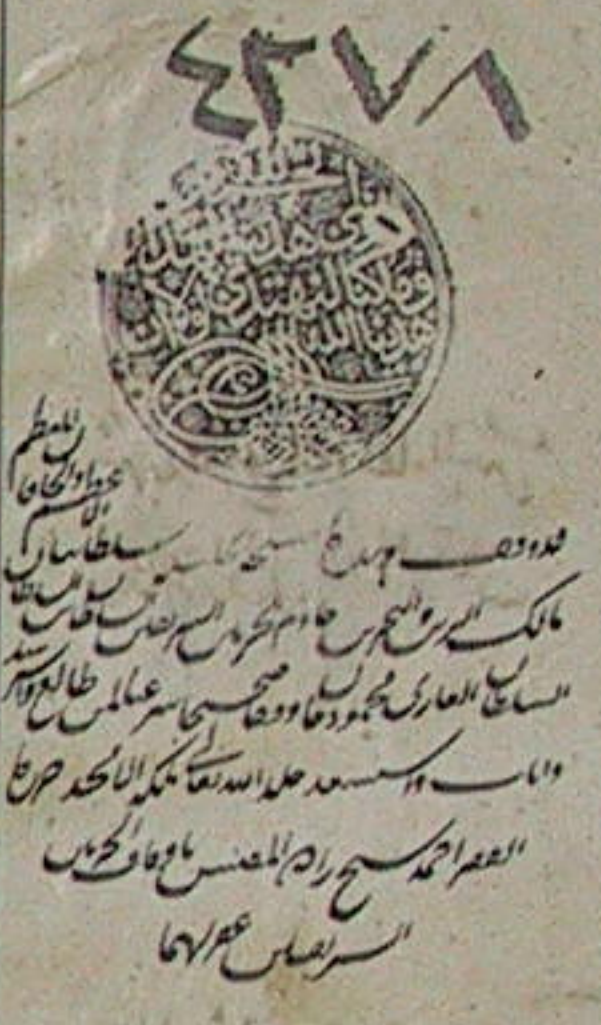 ٤٢٧٨
الحمد لله الذي
هدانا لهذا
وما كنا لنهتدي لولا أن
هدانا الله
قد وقف هذه النسخة الجليلة سلطاننا الاعظم والخاقان المعظم
مالك البرين والبحرين خادم الحرمين الشريفين السلطان بن السلطان
السلطان الغازي محمود خان وقفا صحيحا شرعيا لمن طالع واسترشد
واناب واستسعد خلد الله تعالى ملكه الامجد حرره
الفقير احمد شيخ زاده المفتش باوقاف الحرمين
الشريفين غفر لهما